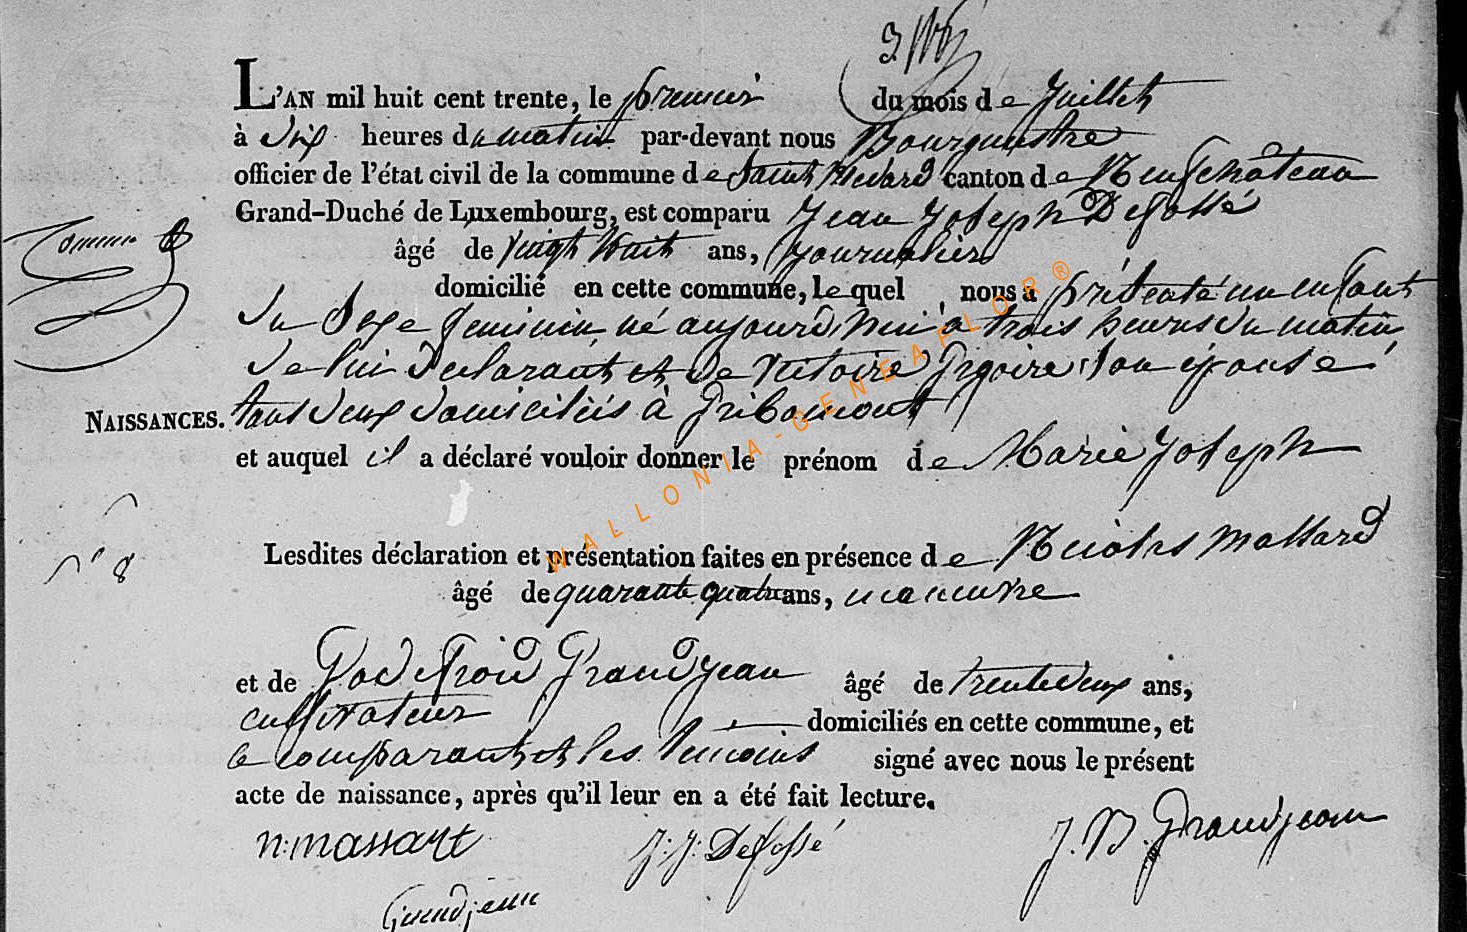 L'AN mil huit cent trente, le premier du mois de Juillet
à dix heures du matin par-devant nous Bourguestre
officier de l'état civil de la commune de Saint Medard canton de Neufchâteau
Grand-Duché de Luxembourg, est comparu Jean Joseph Defossé
âgé de vingt huit ans, journalier
domicilié en cette commune, le quel nous a présenté un enfant
du Sexe feminin né aujourd'hui à trois heures du matin
de lui declarant et de Victoire Grgoire son épouse
NAISSANCES. tous deux domiciliés à Gribomont
et auquel il a déclaré vouloir donner le prénom de Marie Joseph
n° 8
Lesdites déclaration et présentation faites en présence de Nicolas Massard
âgé de quarante quatre ans, manuvre
et de Godefroid Grandjean âgé de trente deux ans,
cultivateur domiciliés en cette commune, et
le comparant et les temoins signé avec nous le présent
acte de naissance, après qu'il leur en a été fait lecture.
n: massart J: J: Defossé J. B. Grandjean
Grandjean
WALLONIA-GENEAFLOR®